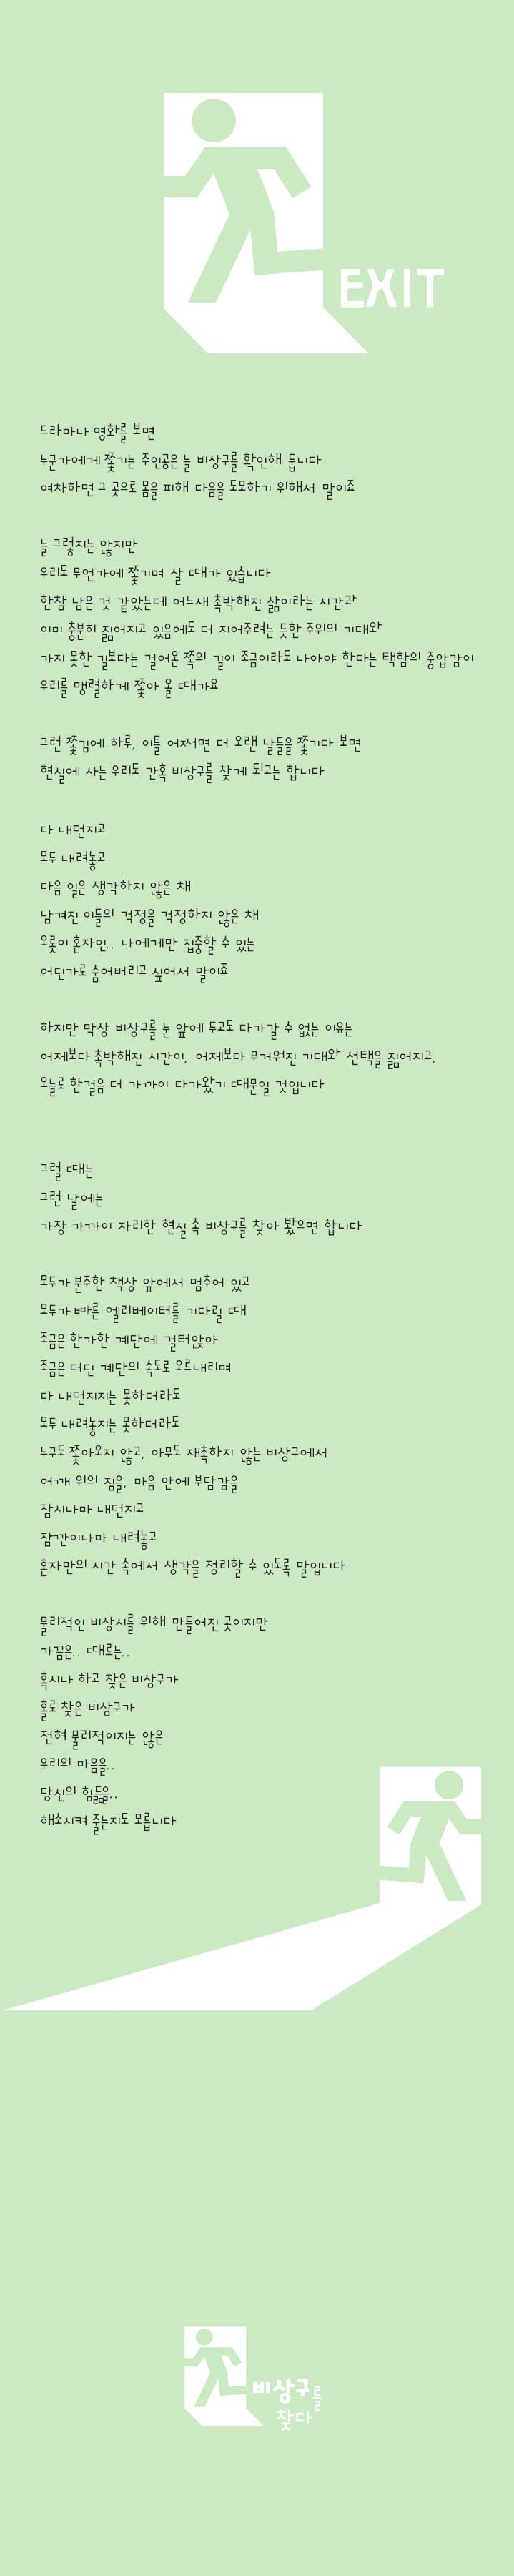 EXIT
드라마나 영화를 보면
누군가에게 쫓기는 주인공은 늘 비상구를 확인해 둡니다
여차하면 그 곳으로 몸을 피해 다음을 도모하기 위해서 말이죠
늘 그렇지는 않지만
우리도 무언가에 쫓기며 살 때가 있습니다
한참 남은 것 같았는데 어느새 촉박해진 삶이라는 시간과
이미 충분히 짊어지고 있음에도 더 지어주려는 듯한 주위의 기대와
가지 못한 길보다는 걸어온 쪽의 길이 조금이라도 나아야 한다는 택함의 중압감이
우리를 맹렬하게 쫓아 올 때가요
그런 쫓김에 하루, 이틀 어쩌면 더 오랜 날들을 쫓기다 보면
현실에 사는 우리도 간혹 비상구를 찾게 되고는 합니다
다 내던지고
모두 내려놓고
다음 일은 생각하지 않은 채
남겨진 이들의 걱정을 걱정하지 않은 채
오롯이 혼자인.. 나에게만 집중할 수 있는
어딘가로 숨어버리고 싶어서 말이죠
하지만 막상 비상구를 눈 앞에 두고도 다가갈 수 없는 이유는
어제보다 촉박해진 시간이, 어제보다 무거워진 기대와 선택을 짊어지고,
오늘로 한걸음 더 가까이 다가왔기 때문일 것입니다
그럴 때는
그런 날에는
가장 가까이 자리한 현실 속 비상구를 찾아 봤으면 합니다
모두가 분주한 책상 앞에서 멈추어 있고
모두가 빠른 엘리베이터를 기다릴 때
조금은 한가한 계단에 걸터앉아
조금은 더딘 계단의 속도로 오르내리며
다 내던지지는 못하더라도
모두 내려놓지는 못하더라도
누구도 쫓아오지 않고, 아무도 재촉하지 않는 비상구에서
어깨 위의 짐을, 마음 안에 부담감을
잠시나마 내던지고
잠깐이나마 내려놓고
혼자만의 시간 속에서 생각을 정리할 수 있도록 말입니다
물리적인 비상시를 위해 만들어진 곳이지만
가끔은.. 때로는..
혹시나 하고 찾은 비상구가
홀로 찾은 비상구가
전혀 물리적이지는 않은
우리의 마음을..
당신의 힘듦을..
해소시켜 줄는지도 모릅니다
비상구를
찾다